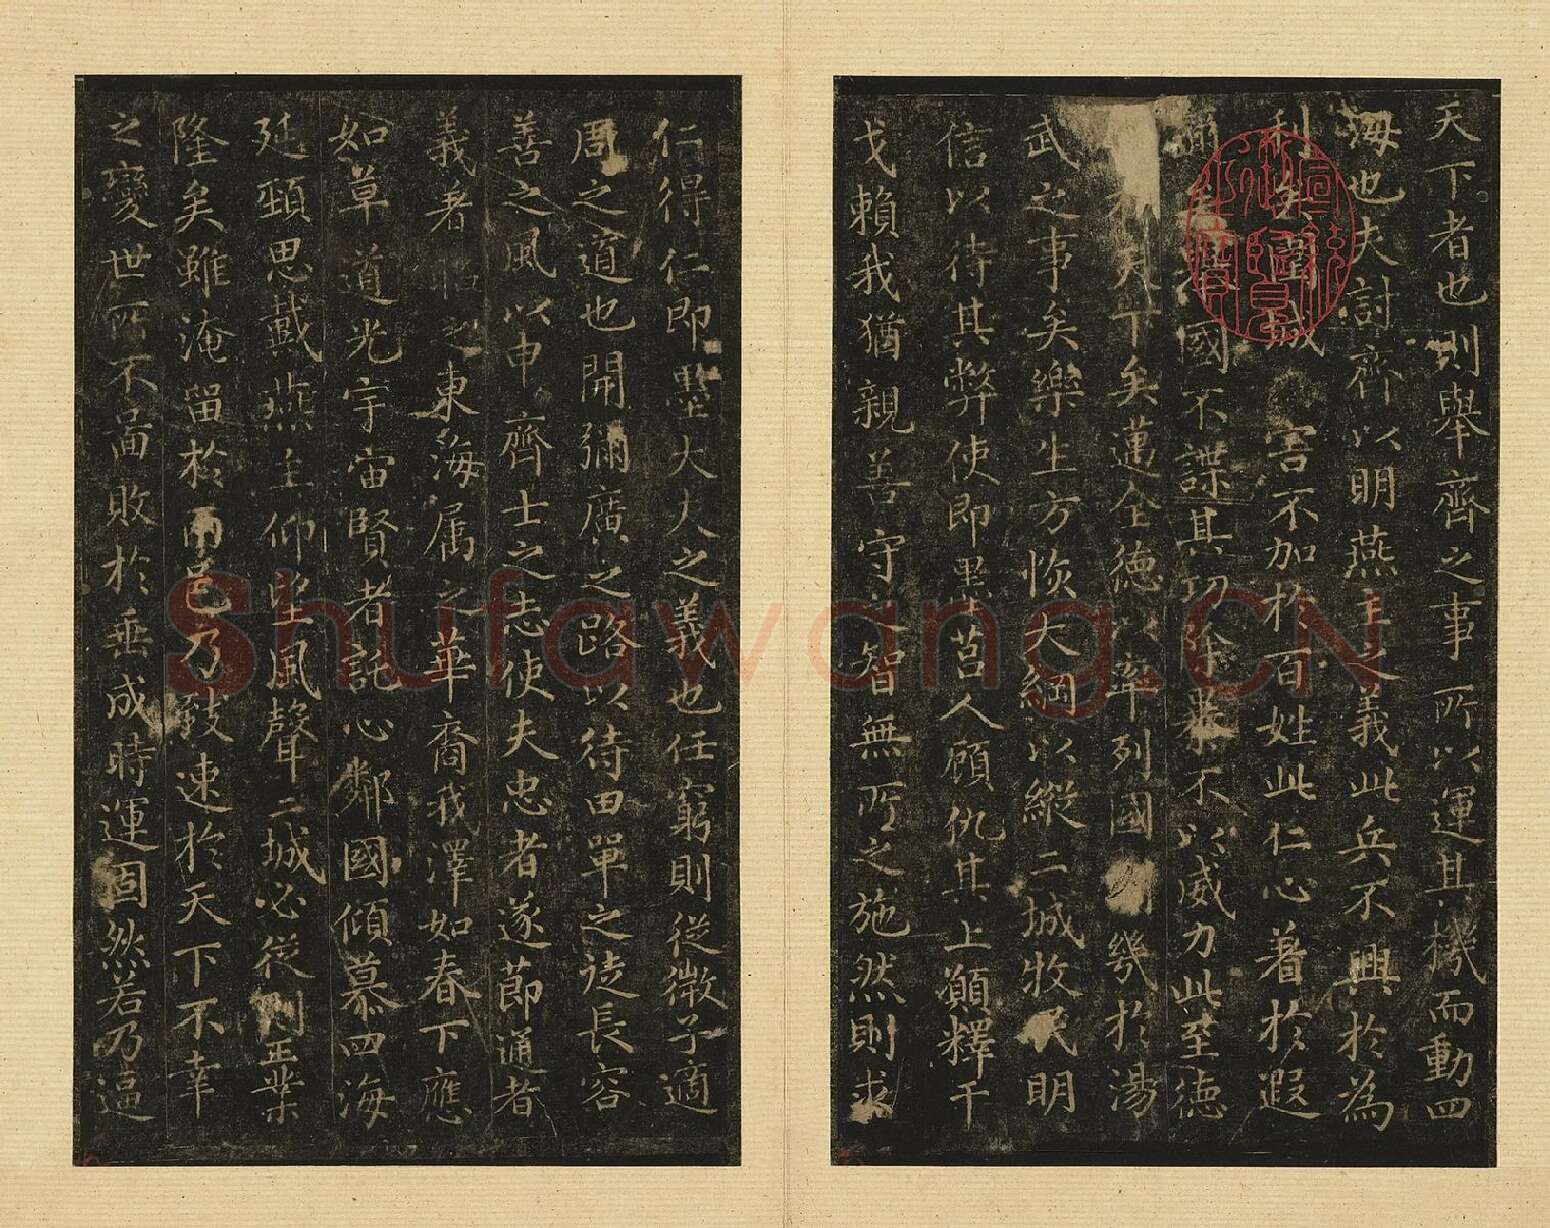 天下者也則舉齊之事所以運其機而動四
海也夫討齊以明燕主之義此兵不興於為
利矣圍城害不加於百姓此仁心著於遐
邇矣國不謀其功除暴不以威力此至德
天下矣邁全德以率列國幾於湯
武之事矣樂生方恢大綱以縱二城牧民明
信以待其弊使即墨莒人顧仇其上願釋干
戈賴我猶親善守之智無所之施然則求
仁得仁即墨大夫之義也任窮則從微子適
周之道也開彌廣之路以待田單之徒長容
善之風以申齊士之志使夫忠者遂節通者
義著之東海属之華裔我澤如春下應
如草道光宇宙賢者託心鄰國傾慕四海
延頸思戴燕主仰望風聲二城必從則王業
隆矣雖淹留於兩邑乃致速於天下不幸
之變世所不圖敗於垂成時運固然若乃逼
Shufawang.CN